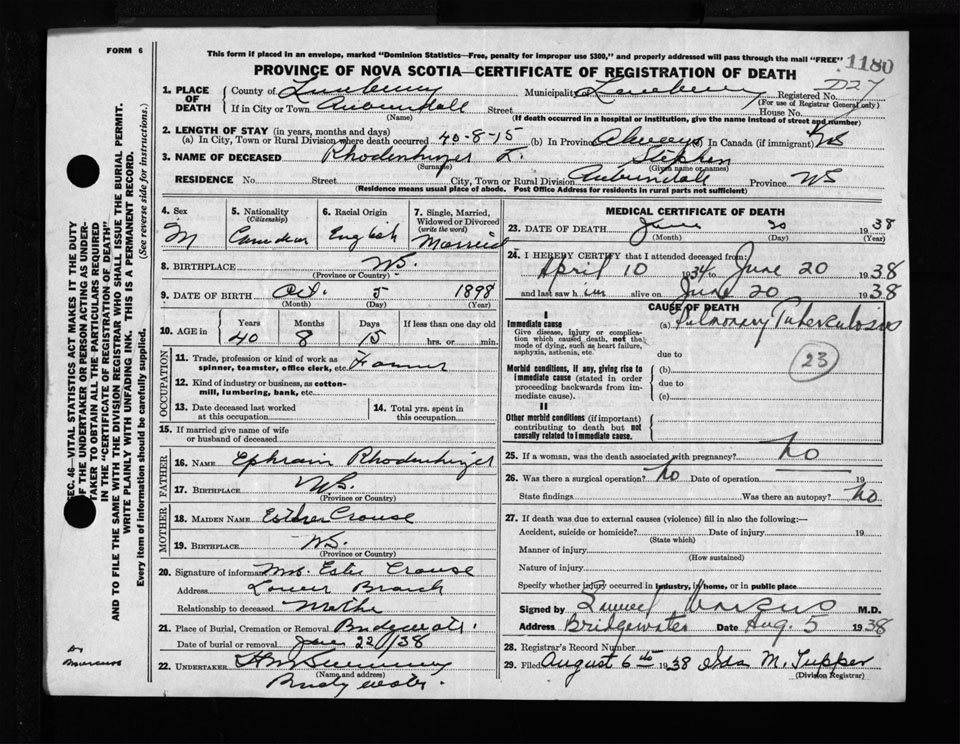 FORM 6
This form if placed in an envelope, marked "Dominion Statistics—Free, penalty for improper use $300," and properly addressed will pass through the mail "FREE"
1180
PROVINCE OF NOVA SCOTIA—CERTIFICATE OF REGISTRATION OF DEATH
727
1. PLACE OF DEATH
County of Lunenburg Municipality of Lunenburg Registered No.
(For use of Registrar General only)
If in City or Town Auburndale Street House No.
(Name) (If death occurred in a hospital or institution, give the name instead of street and number)
2. LENGTH OF STAY (in years, months and days)
(a) In City, Town or Rural Division where death occurred 40-8-15 (b) In Province Always (c) In Canada (if immigrant)
3. NAME OF DECEASED Rhodenhizer L. Stephen
(Surname) (Given name or names)
RESIDENCE No. Street City, Town or Rural Division Auburndale Province NS
(Residence means usual place of abode. Post Office Address for residents in rural parts not sufficient)
4. Sex M
5. Nationality (Citizenship) Canadian
6. Racial Origin English
7. Single, Married, Widowed or Divorced (write the word) Married
8. BIRTHPLACE NS.
(Province or Country)
9. DATE OF BIRTH Oct. 5 1898
(Month) (Day) (Year)
10. AGE in Years Months Days If less than one day old
40 8 15 hrs. or min.
OCCUPATION
11. Trade, profession or kind of work as spinner, teamster, office clerk, etc. Farmer
12. Kind of industry or business, as cotton-mill, lumbering, bank, etc.
13. Date deceased last worked at this occupation
14. Total yrs. spent in this occupation
15. If married give name of wife or husband of deceased
FATHER
16. NAME Ephraim Rhodenhizer
17. BIRTHPLACE NS.
(Province or Country)
MOTHER
18. MAIDEN NAME Esther Crouse
19. BIRTHPLACE NS.
(Province or Country)
20. Signature of informant Mrs. Crouse
Address Lower Branch
Relationship to deceased Mother
21. Place of Burial, Cremation or Removal Bridgewater
Date of burial or removal June 22/38
22. UNDERTAKER
(Name and address)
Bridgewater
MEDICAL CERTIFICATE OF DEATH
23. DATE OF DEATH June 20 1938
(Month) (Day) (Year)
24. I HEREBY CERTIFY that I attended deceased from:
April 10 1934 to June 20 1938
and last saw him alive on June 20 1938
CAUSE OF DEATH
I
Immediate cause (a) Pulmonary Tuberculosis
Give disease, injury or complication which caused death, not the mode of dying, such as heart failure, asphyxia, asthenia, etc.
due to
23
Morbid conditions, if any, giving rise to immediate cause (stated in order proceeding backwards from immediate cause).
(b)
due to
(c)
II
Other morbid conditions (if important) contributing to death but not causally related to immediate cause.
25. If a woman, was the death associated with pregnancy? no
26. Was there a surgical operation? no Date of operation 19
State findings Was there an autopsy? no
27. If death was due to external causes (violence) fill in also the following:—
Accident, suicide or homicide? Date of injury 19
(State which)
Manner of injury
(How sustained)
Nature of injury
Specify whether injury occurred in industry, in home, or in public place
Signed by Marcus M.D.
Address Bridgewater Date Aug. 5 1938
28. Registrar's Record Number
29. Filed August 6th 1938 Ida M. Tupper
(Division Registrar)
SEC. 46—VITAL STATISTICS ACT MAKES IT THE DUTY OF THE UNDERTAKER OR PERSON ACTING AS UNDERTAKER TO OBTAIN ALL THE PARTICULARS REQUIRED IN THE "CERTIFICATE OF REGISTRATION OF DEATH"
AND TO FILE THE SAME WITH THE DIVISION REGISTRAR WHO SHALL ISSUE THE BURIAL PERMIT.
WRITE PLAINLY WITH UNFADING INK. THIS IS A PERMANENT RECORD.
Every item of information should be carefully supplied. (See reverse side for instructions.)
Dr
Marcus